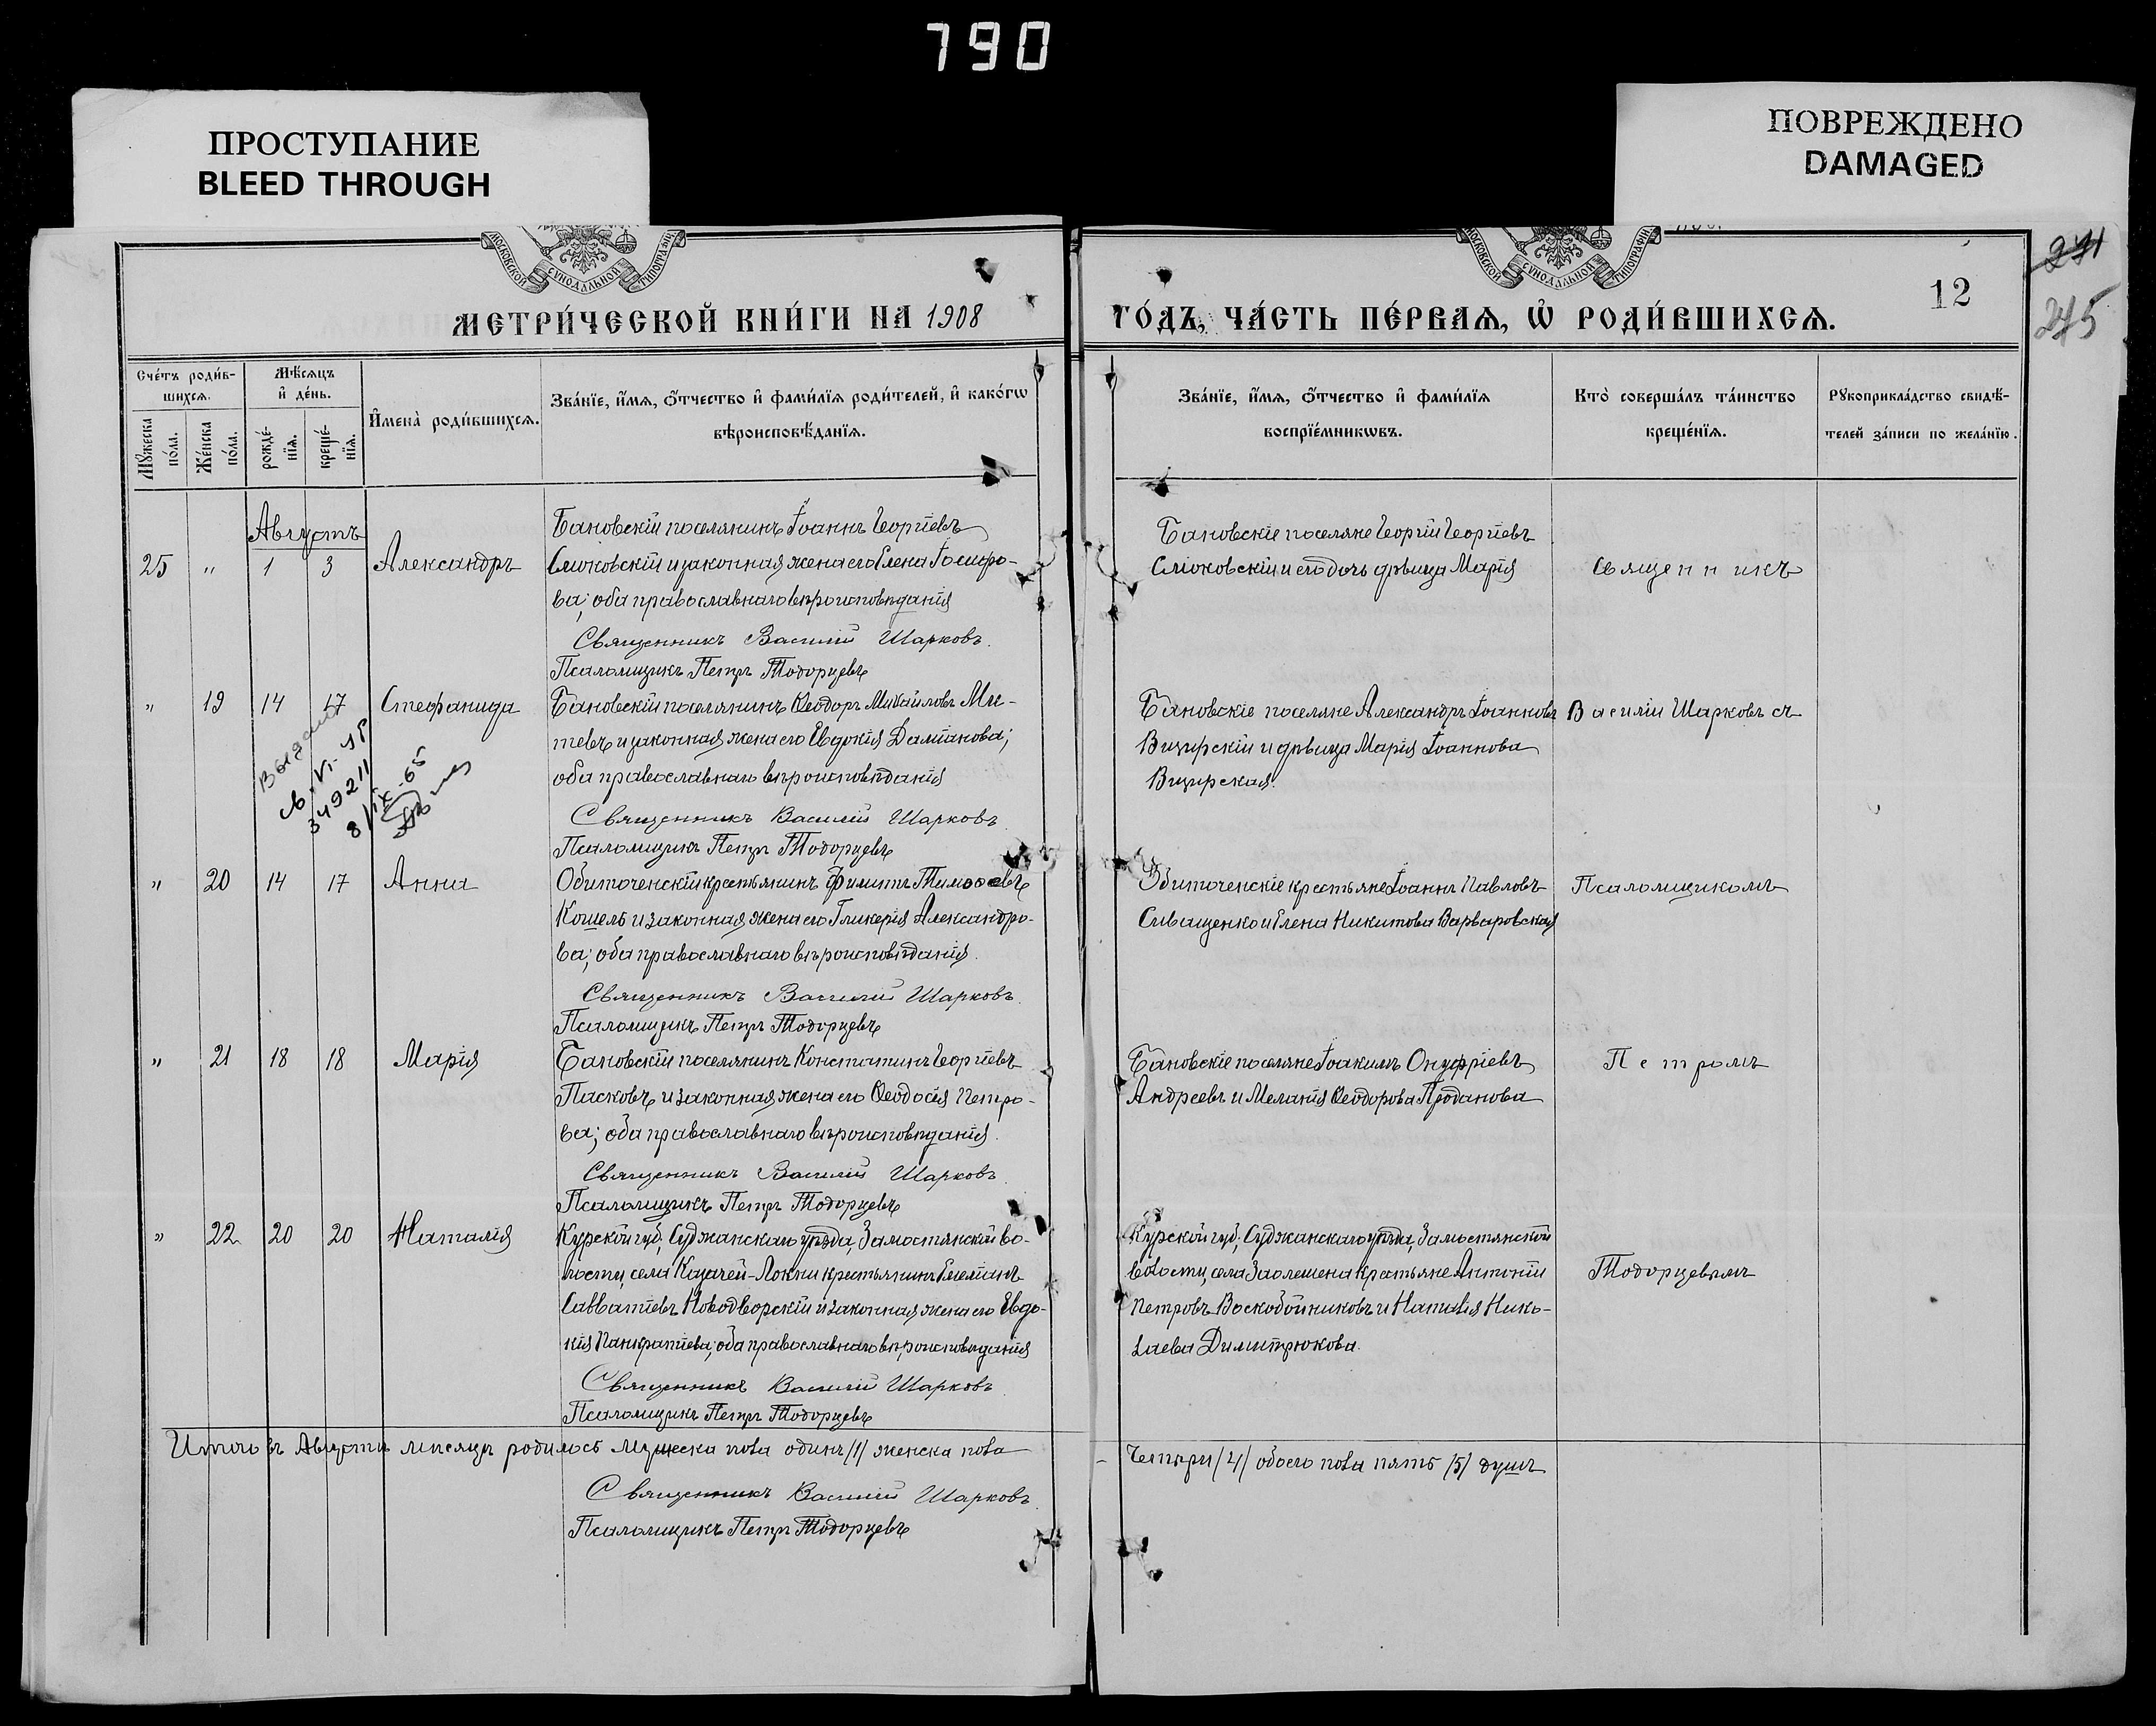 790
ПРОСТУПАНИЕ
BLEED THROUGH
ПОВРЕЖДЕНО
DAMAGED
МОСКОВСКОЙ СѴНОДАЛЬНОЙ ТИПОГРАФІИ
МОСКОВСКОЙ СѴНОДАЛЬНОЙ ТИПОГРАФІИ
12
271
245
МЕТРИ́ЧЕСКОЙ КНИ́ГИ НА 1908
ГО́ДЪ, ЧА́СТЬ ПЕ́РВАѦ, Ѡ҆ РОДИ́ВШИХСѦ.
Сче́тъ роди́в-
шихсѧ.
Мꙋ́жеска по́ла.
Же́нска по́ла.
Мѣ́сѧцъ
и҆ де́нь.
рожде́-
нїѧ.
креще́-
нїѧ.
И҆мена̀ роди́вшихсѧ.
Зва́нїе, и҆́мѧ, ѻ҆́тчество и҆ фами́лїѧ роди́телей, и҆ како́гѡ
вѣроисповѣ́данїѧ.
Зва́нїе, и҆́мѧ, ѻ҆́тчество и҆ фами́лїѧ
воспрїе́мникѡвъ.
Кто̀ соверша́лъ та́инство
креще́нїѧ.
Рꙋкоприкла́дство свидѣ́-
телей за́писи по жела́нїю.
Августъ
25 " 1 3 Александръ
Бановскій поселянинъ Іоаннъ Георгіевъ
Сліоковскій и законная жена его Елена Іосифо-
ва; оба православнаго вѣроисповѣданія
Священникъ Василій Шарковъ.
Псаломщикъ Петръ Тодорцевъ
Бановскіе поселяне Георгій Георгіевъ
Сліоковскій и его дочь дѣвица Марія
Священникъ
" 19 14 17 Стефанида
Бановскій поселянинъ Ѳеодоръ Михайловъ Ми-
тевъ и законная жена его Евдокія Даміанова;
оба православнаго вѣроисповѣданія
Священникъ Василій Шарковъ
Псаломщикъ Петръ Тодорцевъ
Бановскіе поселяне Александръ Іоанновъ
Визирскій и дѣвица Марія Іоаннова
Визирская.
Василій Шарковъ съ
349211
8/IX-65
" 20 14 17 Анна
Обиточенскій крестьянинъ Филиппъ Тимоѳеевъ
Кошель и законная жена его Гликерія Александро-
ва; оба православнаго вѣроисповѣданія.
Священникъ Василій Шарковъ.
Псаломщикъ Петръ Тодорцевъ
Обиточенскіе крестьяне Іоаннъ Павловъ
Сиващенко и Елена Никитова Варваровская
Псаломщикомъ
" 21 18 18 Марія
Бановскій поселянинъ Константинъ Георгіевъ
Пасковъ и законная жена его Ѳеодосія Петро-
ва; оба православнаго вѣроисповѣданія.
Священникъ Василій Шарковъ
Псаломщикъ Петръ Тодорцевъ
Бановскіе поселяне Іоакимъ Онуфріевъ
Андреевъ и Меланія Ѳеодорова Проданова
Петромъ
" 22 20 20 Наталія
Курской губ., Суджанскаго уѣзда, Замостянской во-
лости, села Казачей-Локни крестьянинъ Емеліанъ
Савватіевъ Новодворскій и законная жена его Евдо-
кія Панкратіева; оба православнаго вѣроисповѣданія
Священникъ Василій Шарковъ
Псаломщикъ Петръ Тодорцевъ
Курской губ., Суджанскаго уѣзда, Замостянской
волости, села Заолешена крестьяне Антоній
Петровъ Воскобойниковъ и Наталія Нико-
лаева Димитрюкова.
Тодорцевымъ
Итого въ Августѣ мѣсяцѣ родилось мужеска пола одинъ /1/ женска пола
четыри /4/ обоего пола пять /5/ душъ
Священникъ Василій Шарковъ
Псаломщикъ Петръ Тодорцевъ